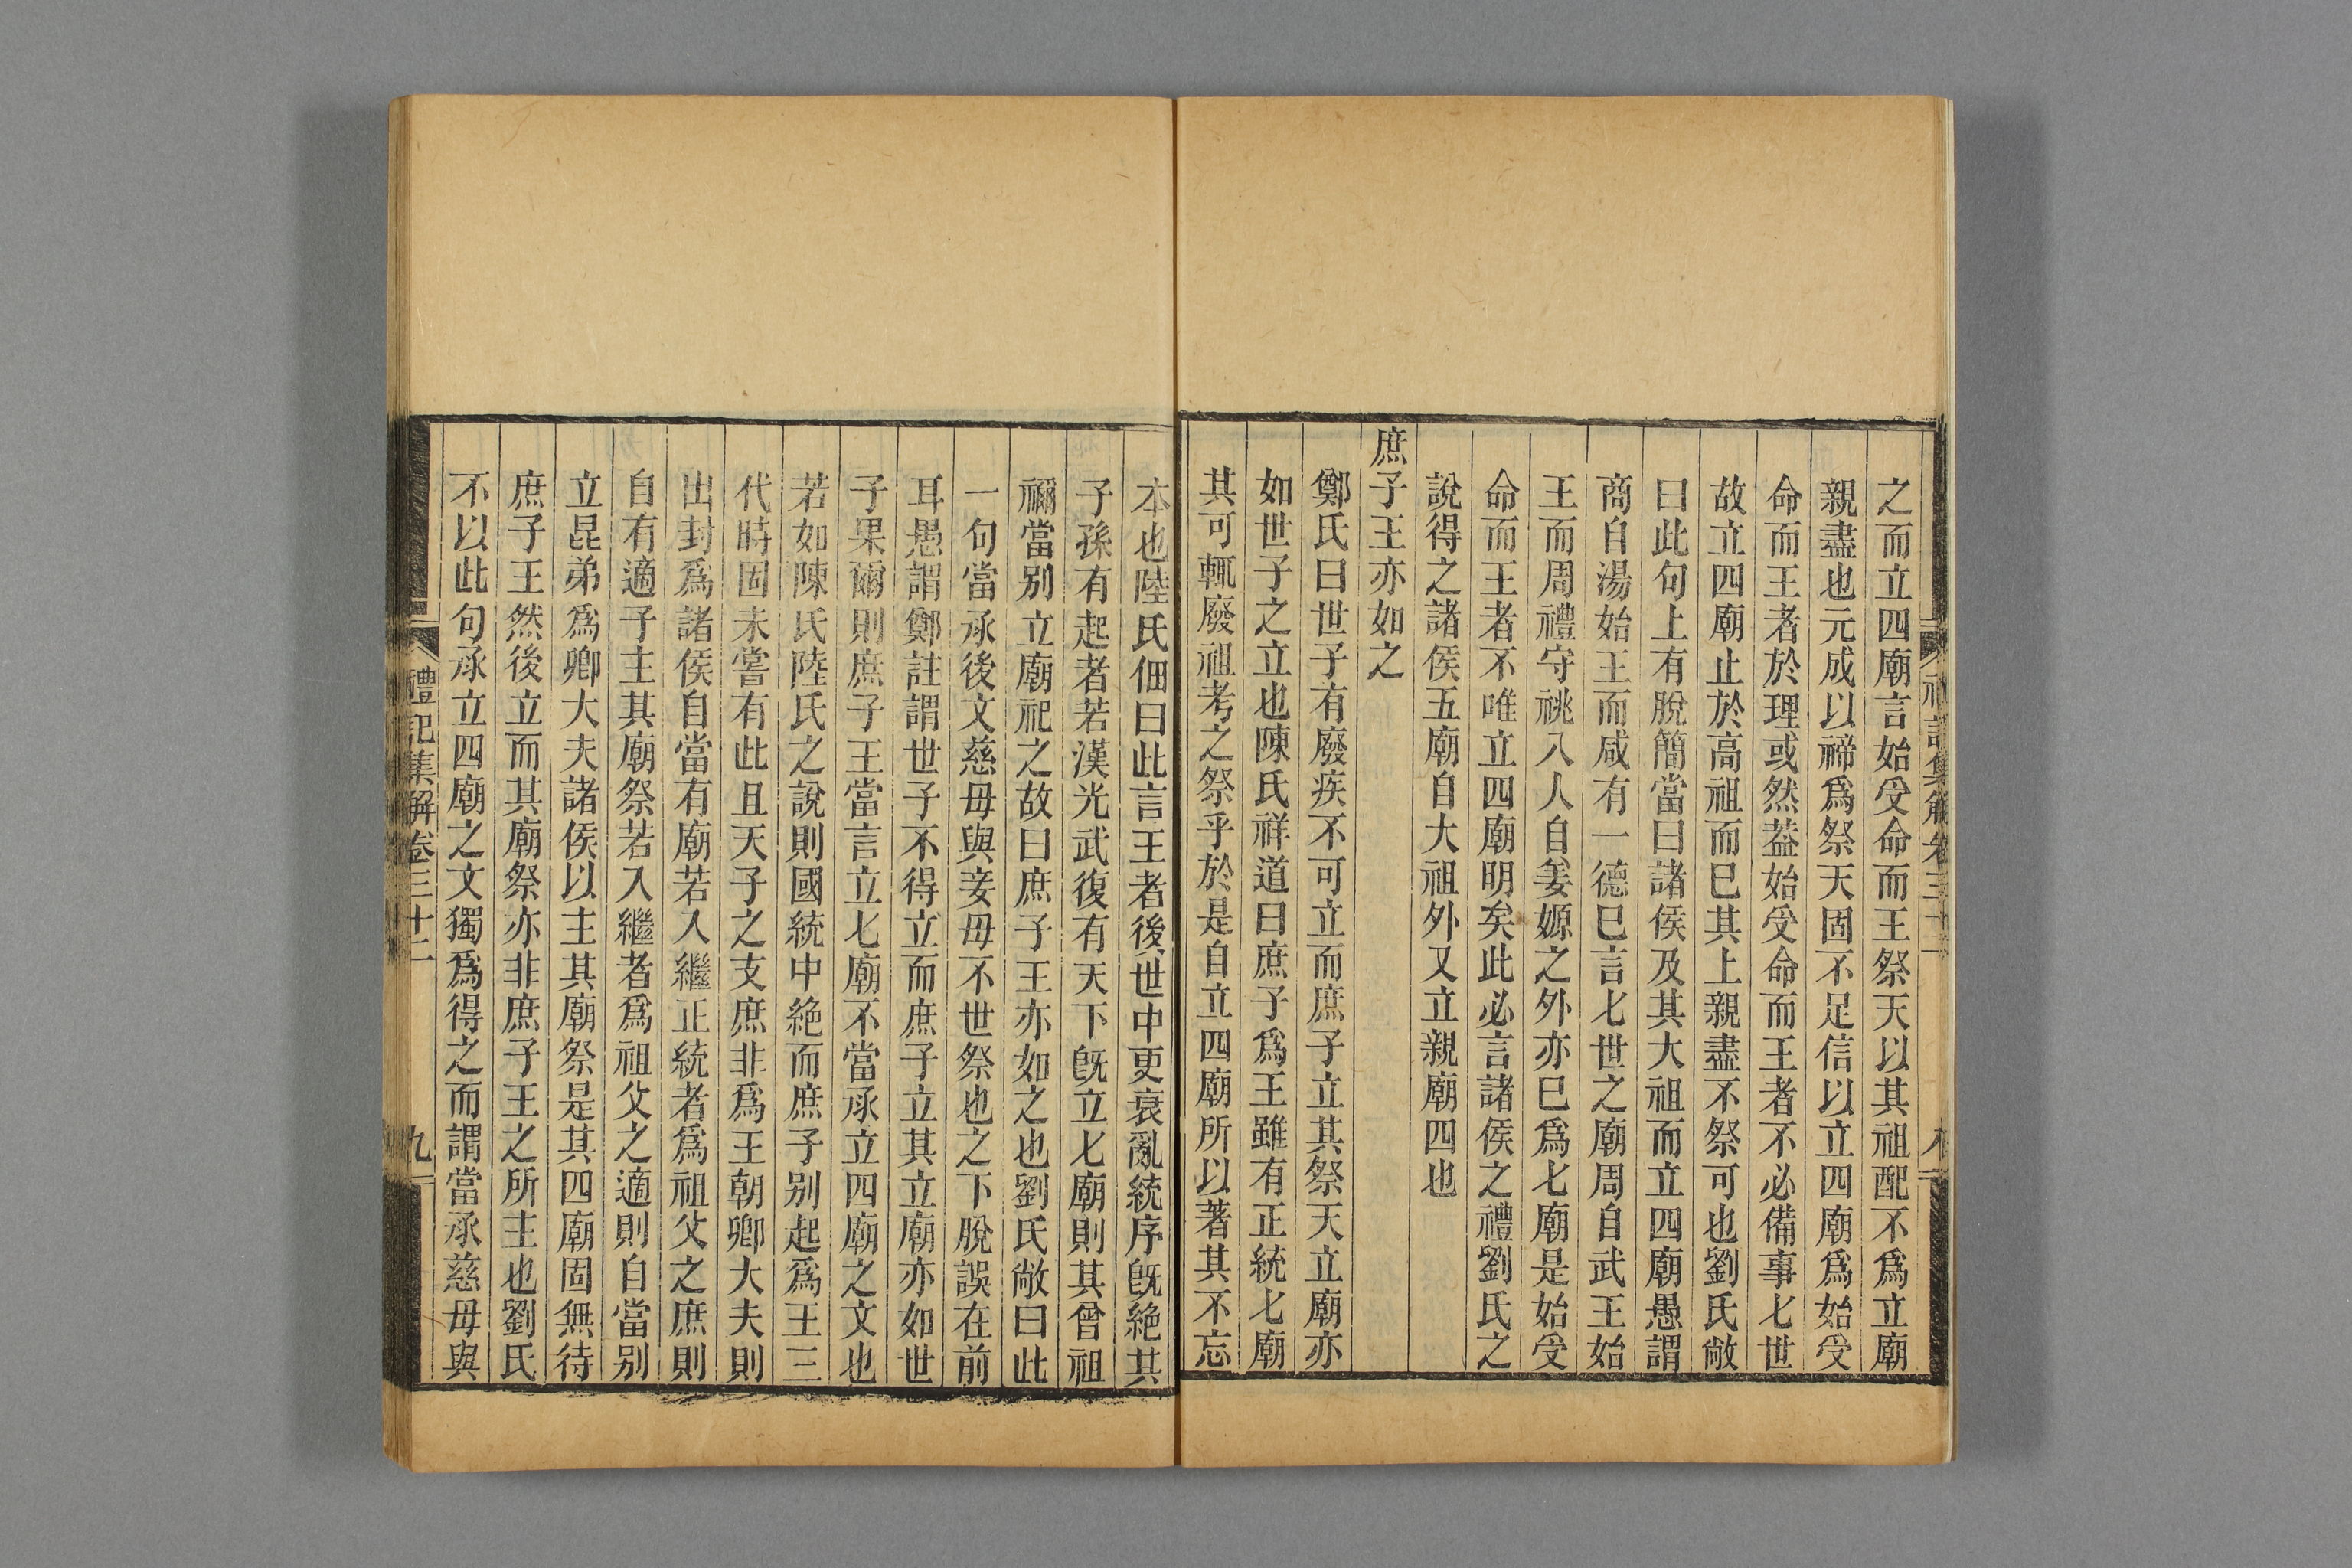 之而立四廟言始受命而王祭天以其祖配不爲立廟
親盡也元成以禘爲祭天固不足信以立四廟爲始受
命而王者於理或然葢始受命而王者不必備事七世
故立四廟止於高祖而巳其上親盡不祭可也劉氏敞
曰此句上有脫簡當曰諸侯及其大祖而立四廟愚謂
商自湯始王而咸有一德巳言七世之廟周自武王始
王而周禮守祧八人自姜嫄之外亦巳爲七廟是始受
命而王者不唯立四廟明矣此必言諸侯之禮劉氏之
說得之諸侯五廟自大祖外又立親廟四也
庶子王亦如之
鄭氏曰世子有廢疾不可立而庶子立其祭天立廟亦
如世子之立也陳氏祥道曰庶子爲王雖有正統七廟
其可輒廢祖考之祭乎於是自立四廟所以著其不忘
本也陸氏佃曰此言王者後世中更衰亂統序旣絶其
子孫有起者若漢光武復有天下旣立七廟則其曾祖
禰當别立廟祀之故曰庶子王亦如之也劉氏敞曰此
一句當承後文慈母與妾母不世祭也之下脫誤在前
耳愚謂鄭註謂世子不得立而庶子立其立廟亦如世
子果爾則庶子王當言立七廟不當承立四廟之文也
若如陳氏陸氏之說則國統中絶而庶子别起爲王三
代時固未嘗有此且天子之支庶非爲王朝卿大夫則
出封爲諸侯自當有廟若入繼正統者爲祖父之庶則
自有適子主其廟祭若入繼者爲祖父之適則自當别
立昆弟爲卿大夫諸侯以主其廟祭是其四廟固無待
庶子王然後立而其廟祭亦非庶子王之所主也劉氏
不以此句承立四廟之文獨爲得之而謂當承慈母與
禮記集解卷三十二
九